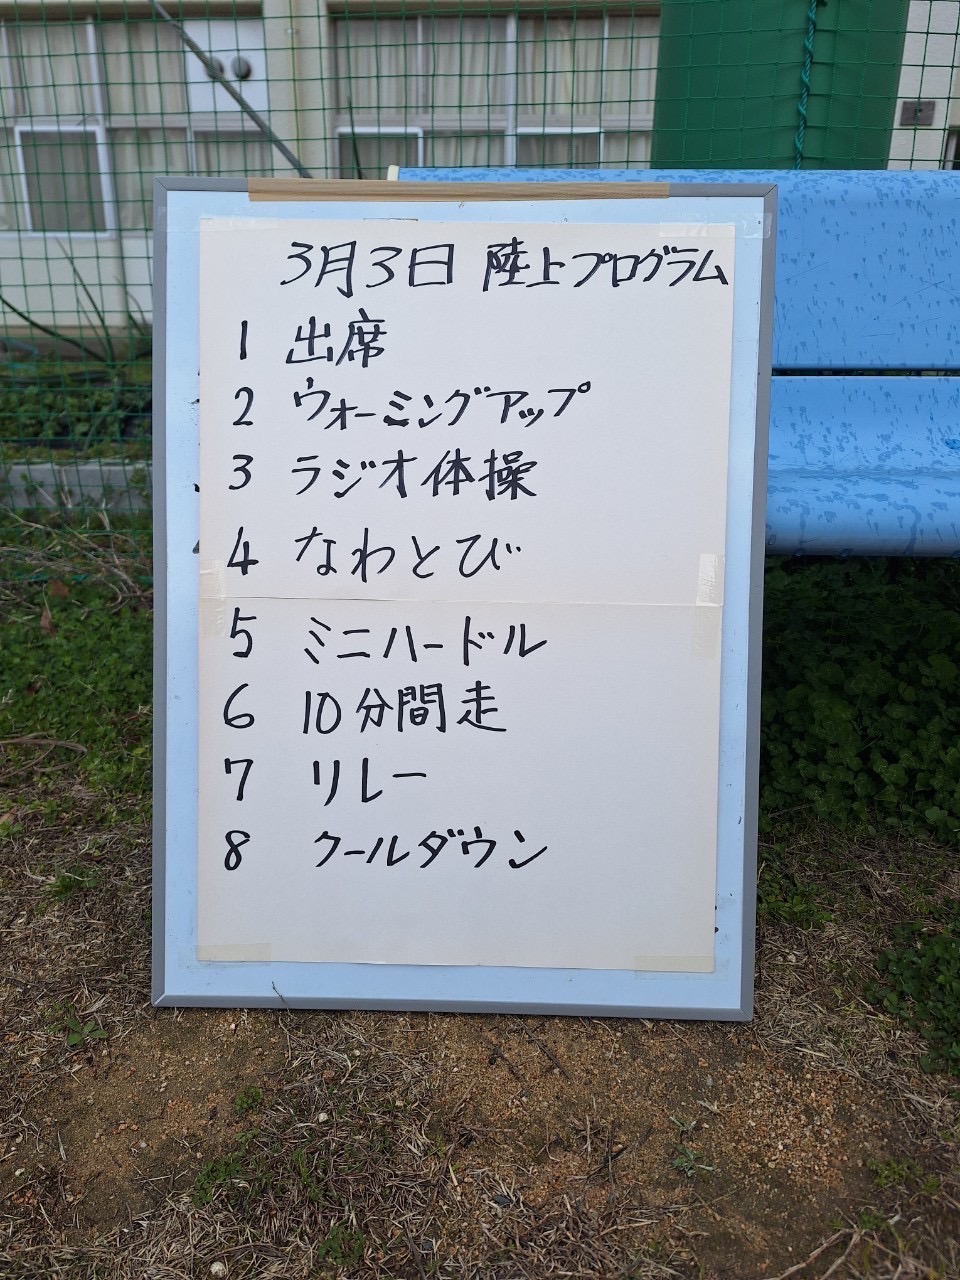 3月3日 陸上プログラム
1 出席
2 ウォーミングアップ
3 ラジオ体操
4 なわとび
5 ミニハードル
6 10分間走
7 リレー
8 クールダウン